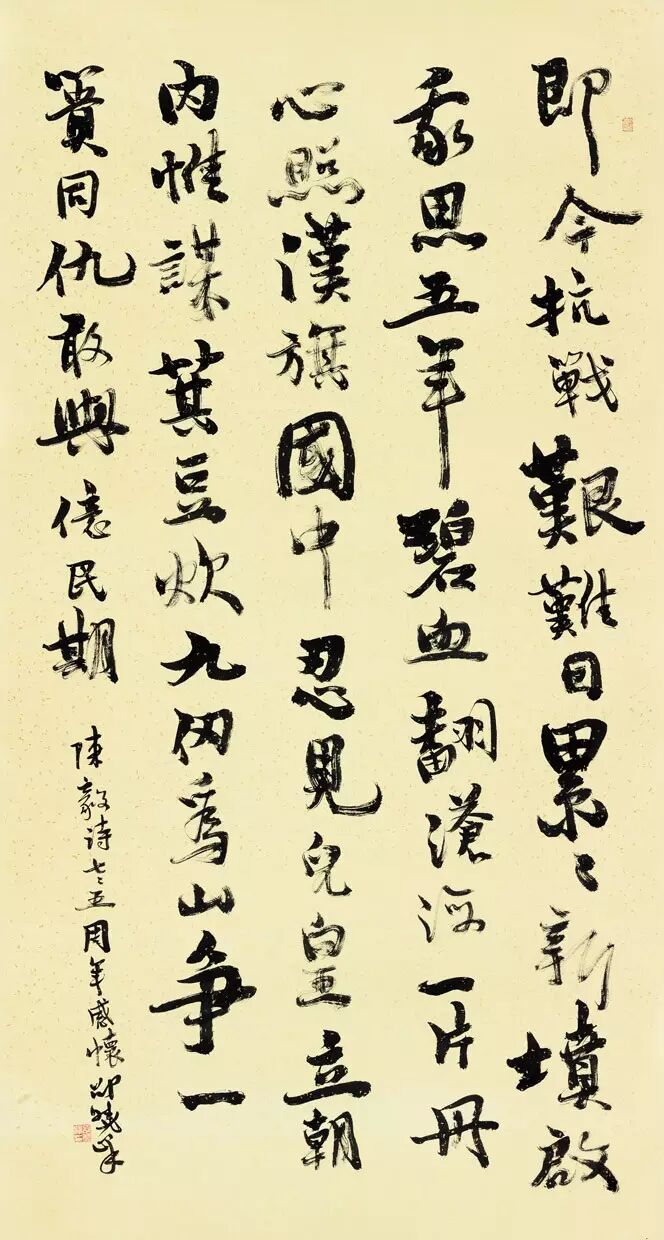 即今抗戰艱難日累々新墳啟
我思五年碧血翻滄海一片丹
心照漢旗國中忍見兒皇立朝
内惟謀萁豆炊九仞爲山爭一
簣同仇敢與億民期
陳毅詩七々五周年感懷邵曉峰